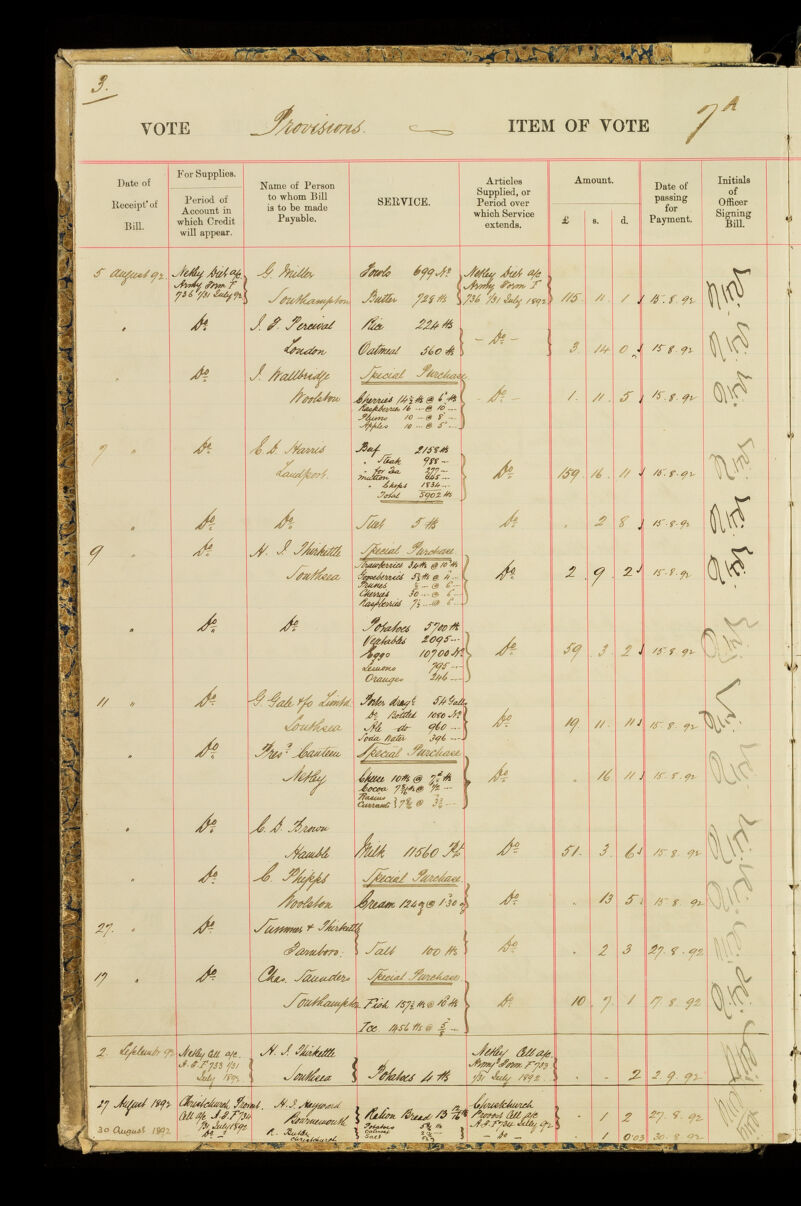 3.
VOTE Provisions. ITEM OF VOTE 7A
Date of Receipt of Bill.
For Supplies.
Period of Account in which Credit will appear.
Name of Person to whom Bill is to be made Payable.
SERVICE.
Articles Supplied, or Period over which Service extends.
Amount.
£ s. d.
Date of passing for Payment.
Initials of Officer Signing Bill.
5 August 92. Netley Diet a/c. G. Miller Fowls 699 No Netley Diet a/c
Army Form F Army Form F
736 1/31 July 92 Southampton Butter 728 lbs 736 1/31 July 1892 115 . 11 . 1 15.8.92
" Do J. F. Percival Rice 224 lbs
London Oatmeal 560 lbs - Do - 3 . 14 0 15.8.92
" Do J. Wallbridge Special Purchase
Woolston Cherries 14½ lbs @ 6d lb - Do - 1 . 11 . 5 15.8.92
Raspberries 16 @ 10
Plums 10 @ 8
Apples 10 @ 5
7 " Do C. D. Harris Beef 2158 lbs
" Steak 988
Landport. " for Tea 277 Do 159 16 . 11 15.8.92
Mutton 645
" Chops 1834
Total 5902 lbs
" Do Do Suet 5 lbs Do . 2 8 15.8.92
9 " Do H. J. Thirkettle Special Purchase
Strawberries 34 lbs @ 10d lb
Southsea Gooseberries 5½ lbs @ 4 Do 2 . 9 . 2 15.8.92
Cherries 30 @ 6
Raspberries 7½ @ 6
" Do Do Potatoes 5700 lb
Vegetables 2095
Eggs 10700 No Do 59 . 3 . 2 15.8.92
Lemons 795
Oranges 246
11 " Do G. Gale & Co Limtd. Porter dragt 54 Galls
Do Bottled 1080 No
Southsea Ale do 960 Do 19 11 . 11 15.8.92
Soda Water 396
" Do Presdt Canteen Special Purchase
Netley Cheese 10 lbs @ 7d lb Do . 16 11 15.8.92
Cocoa
Raisins
Currants
" Do C. D. Brown
Hamble Milk 11560 Pts Do 51 . 3 . 6 15.8.92
" Do C. Phipps Special Purchase
Woolston Cream Do . 13 5 15.8.92
27. " Do Tummer & Thirkettle
Farnboro: Salt 100 lbs Do . 2 3 27.8.92
17 " Do Chas. Saunders Special Purchase
Southampton Fish 157½ lbs @ Do 10 . 7 . 1 17.8.92
Ice. 1456 lbs @
2 . September 92 Netley Cell a/c. H. J. Thirkettle Netley Cell a/c.
A.F. F 733 1/31 Army Form F 733
July 1892 Southsea Potatoes 4 lbs 1/31 July 1892. - - 2 2.9.92
27 August 1892 Christchurch Provost. H. J. Heywood Christchurch
Cell a/c A.F. F 734 Bournemouth Ration Bread Provost Cell a/c - 1 2 27.8.92
July 1892 A.F. F 734 July 92
30 August 1892 Do Christchurch Potatoes - Do - 1 0.03 30.8.92
Oatmeal
Salt